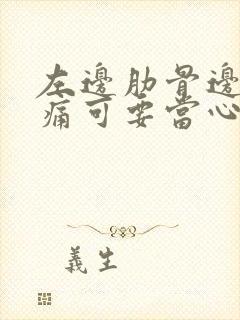 左邊肋骨邊
痛可要當心
義生